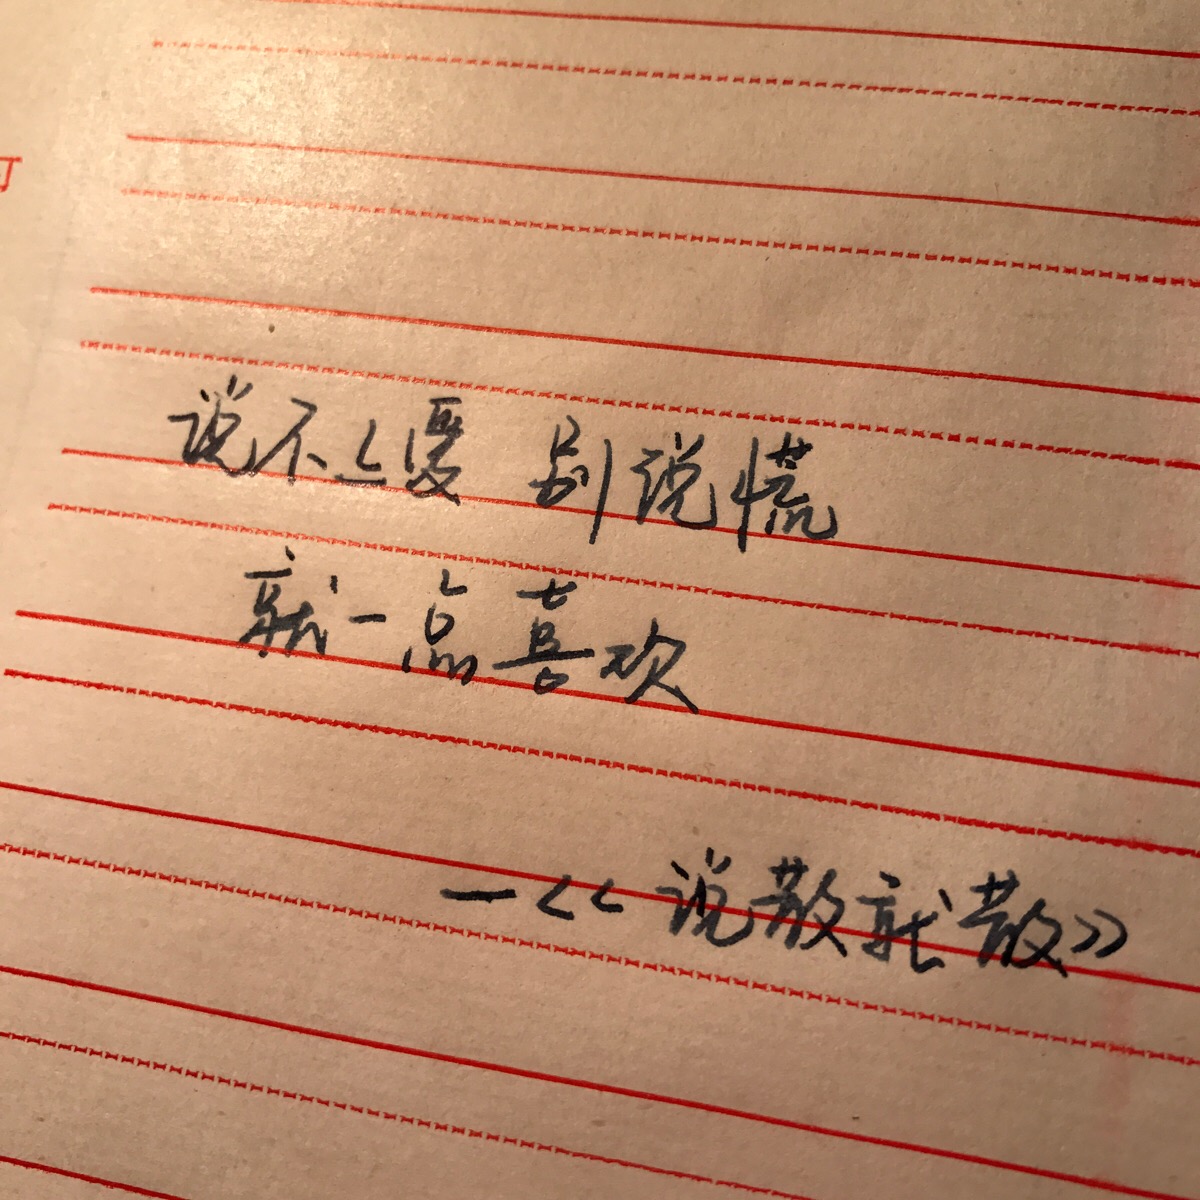 说不上爱 别说慌
就一点喜欢
—《说散就散》